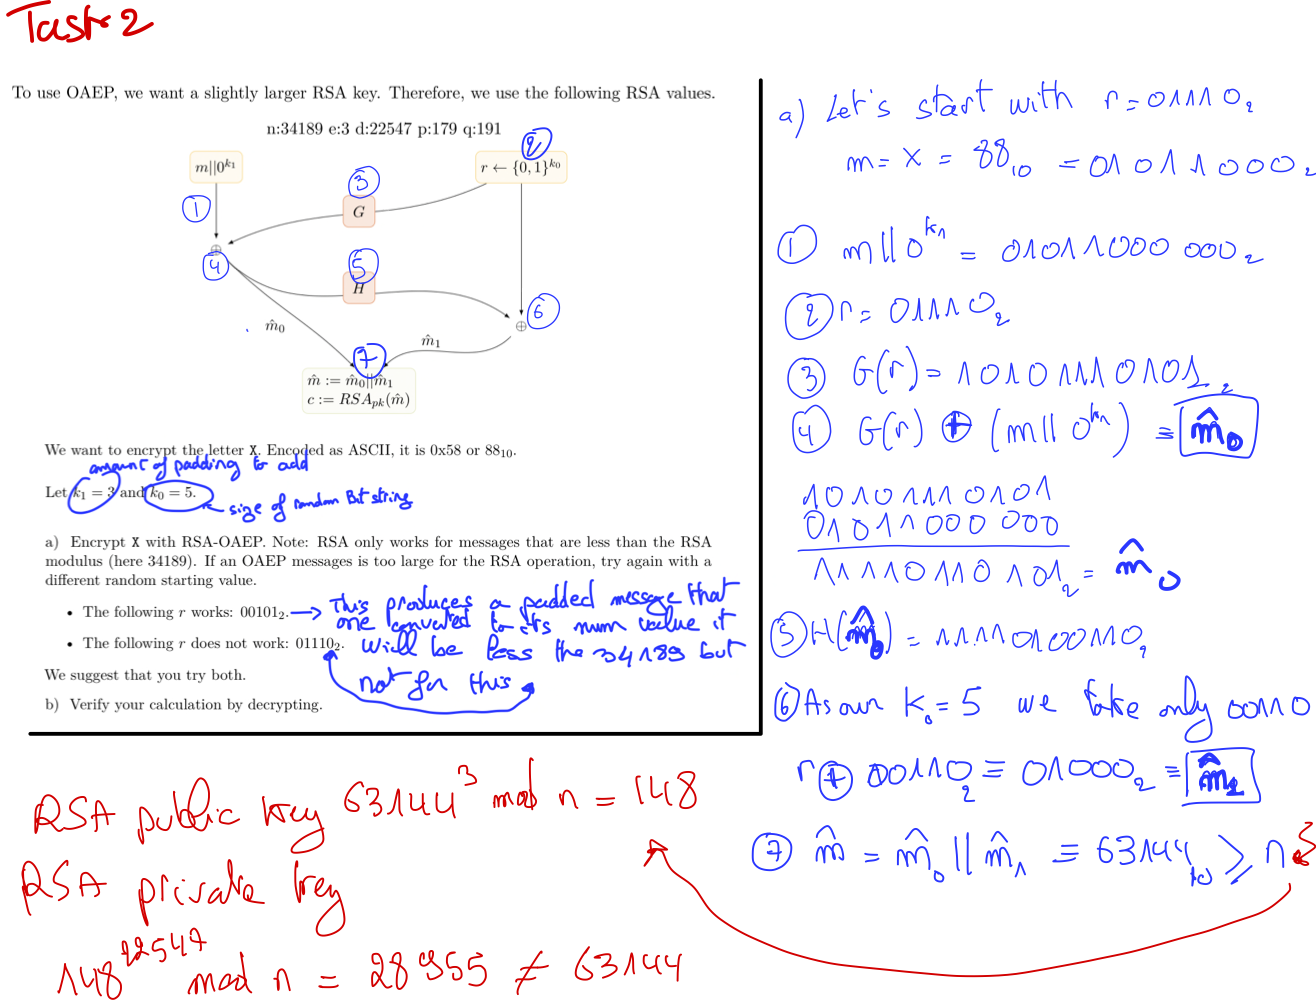 Task 2
To use OAEP, we want a slightly larger RSA key. Therefore, we use the following RSA values.
n:34189 e:3 d:22547 p:179 q:191
m||0^{k_1}
r ← {0, 1}^{k_0}
②
③
①
G
⊕
④
⑤
H
⑥
⊕
m̂_0
m̂_1
⑦
m̂ := m̂_0||m̂_1
c := RSA_{pk}(m̂)
We want to encrypt the letter X. Encoded as ASCII, it is 0x58 or 88_{10}.
amount of padding to add
Let k_1 = 3 and k_0 = 5.
size of random Bit string
a) Encrypt X with RSA-OAEP. Note: RSA only works for messages that are less than the RSA
modulus (here 34189). If an OAEP messages is too large for the RSA operation, try again with a
different random starting value.
• The following r works: 00101_2.
→ This produces a padded message that
one converted to its num value it
• The following r does not work: 01110_2.
will be less the 34189 but
not for this
We suggest that you try both.
b) Verify your calculation by decrypting.
a) Let's start with r = 01110_2
m = X = 88_{10} = 01011000_2
① m || 0^{k_1} = 01011000 000_2
② r = 01110_2
③ G(r) = 10101110101_2
④ G(r) ⊕ (m || 0^{k_1}) = m̂_0
10101110101
01011000 000
11110110 101_2 = m̂_0
⑤ H(m̂_0) = 11110100110_2
⑥ As our k_0 = 5 we take only 00110
r ⊕ 00110_2 = 01000_2 = m̂_1
⑦ m̂ = m̂_0 || m̂_1 = 63144_{10} ≥ n
RSA public key 63144^3 mod n = 148
RSA private key
148^{22547} mod n = 28955 ≠ 63144